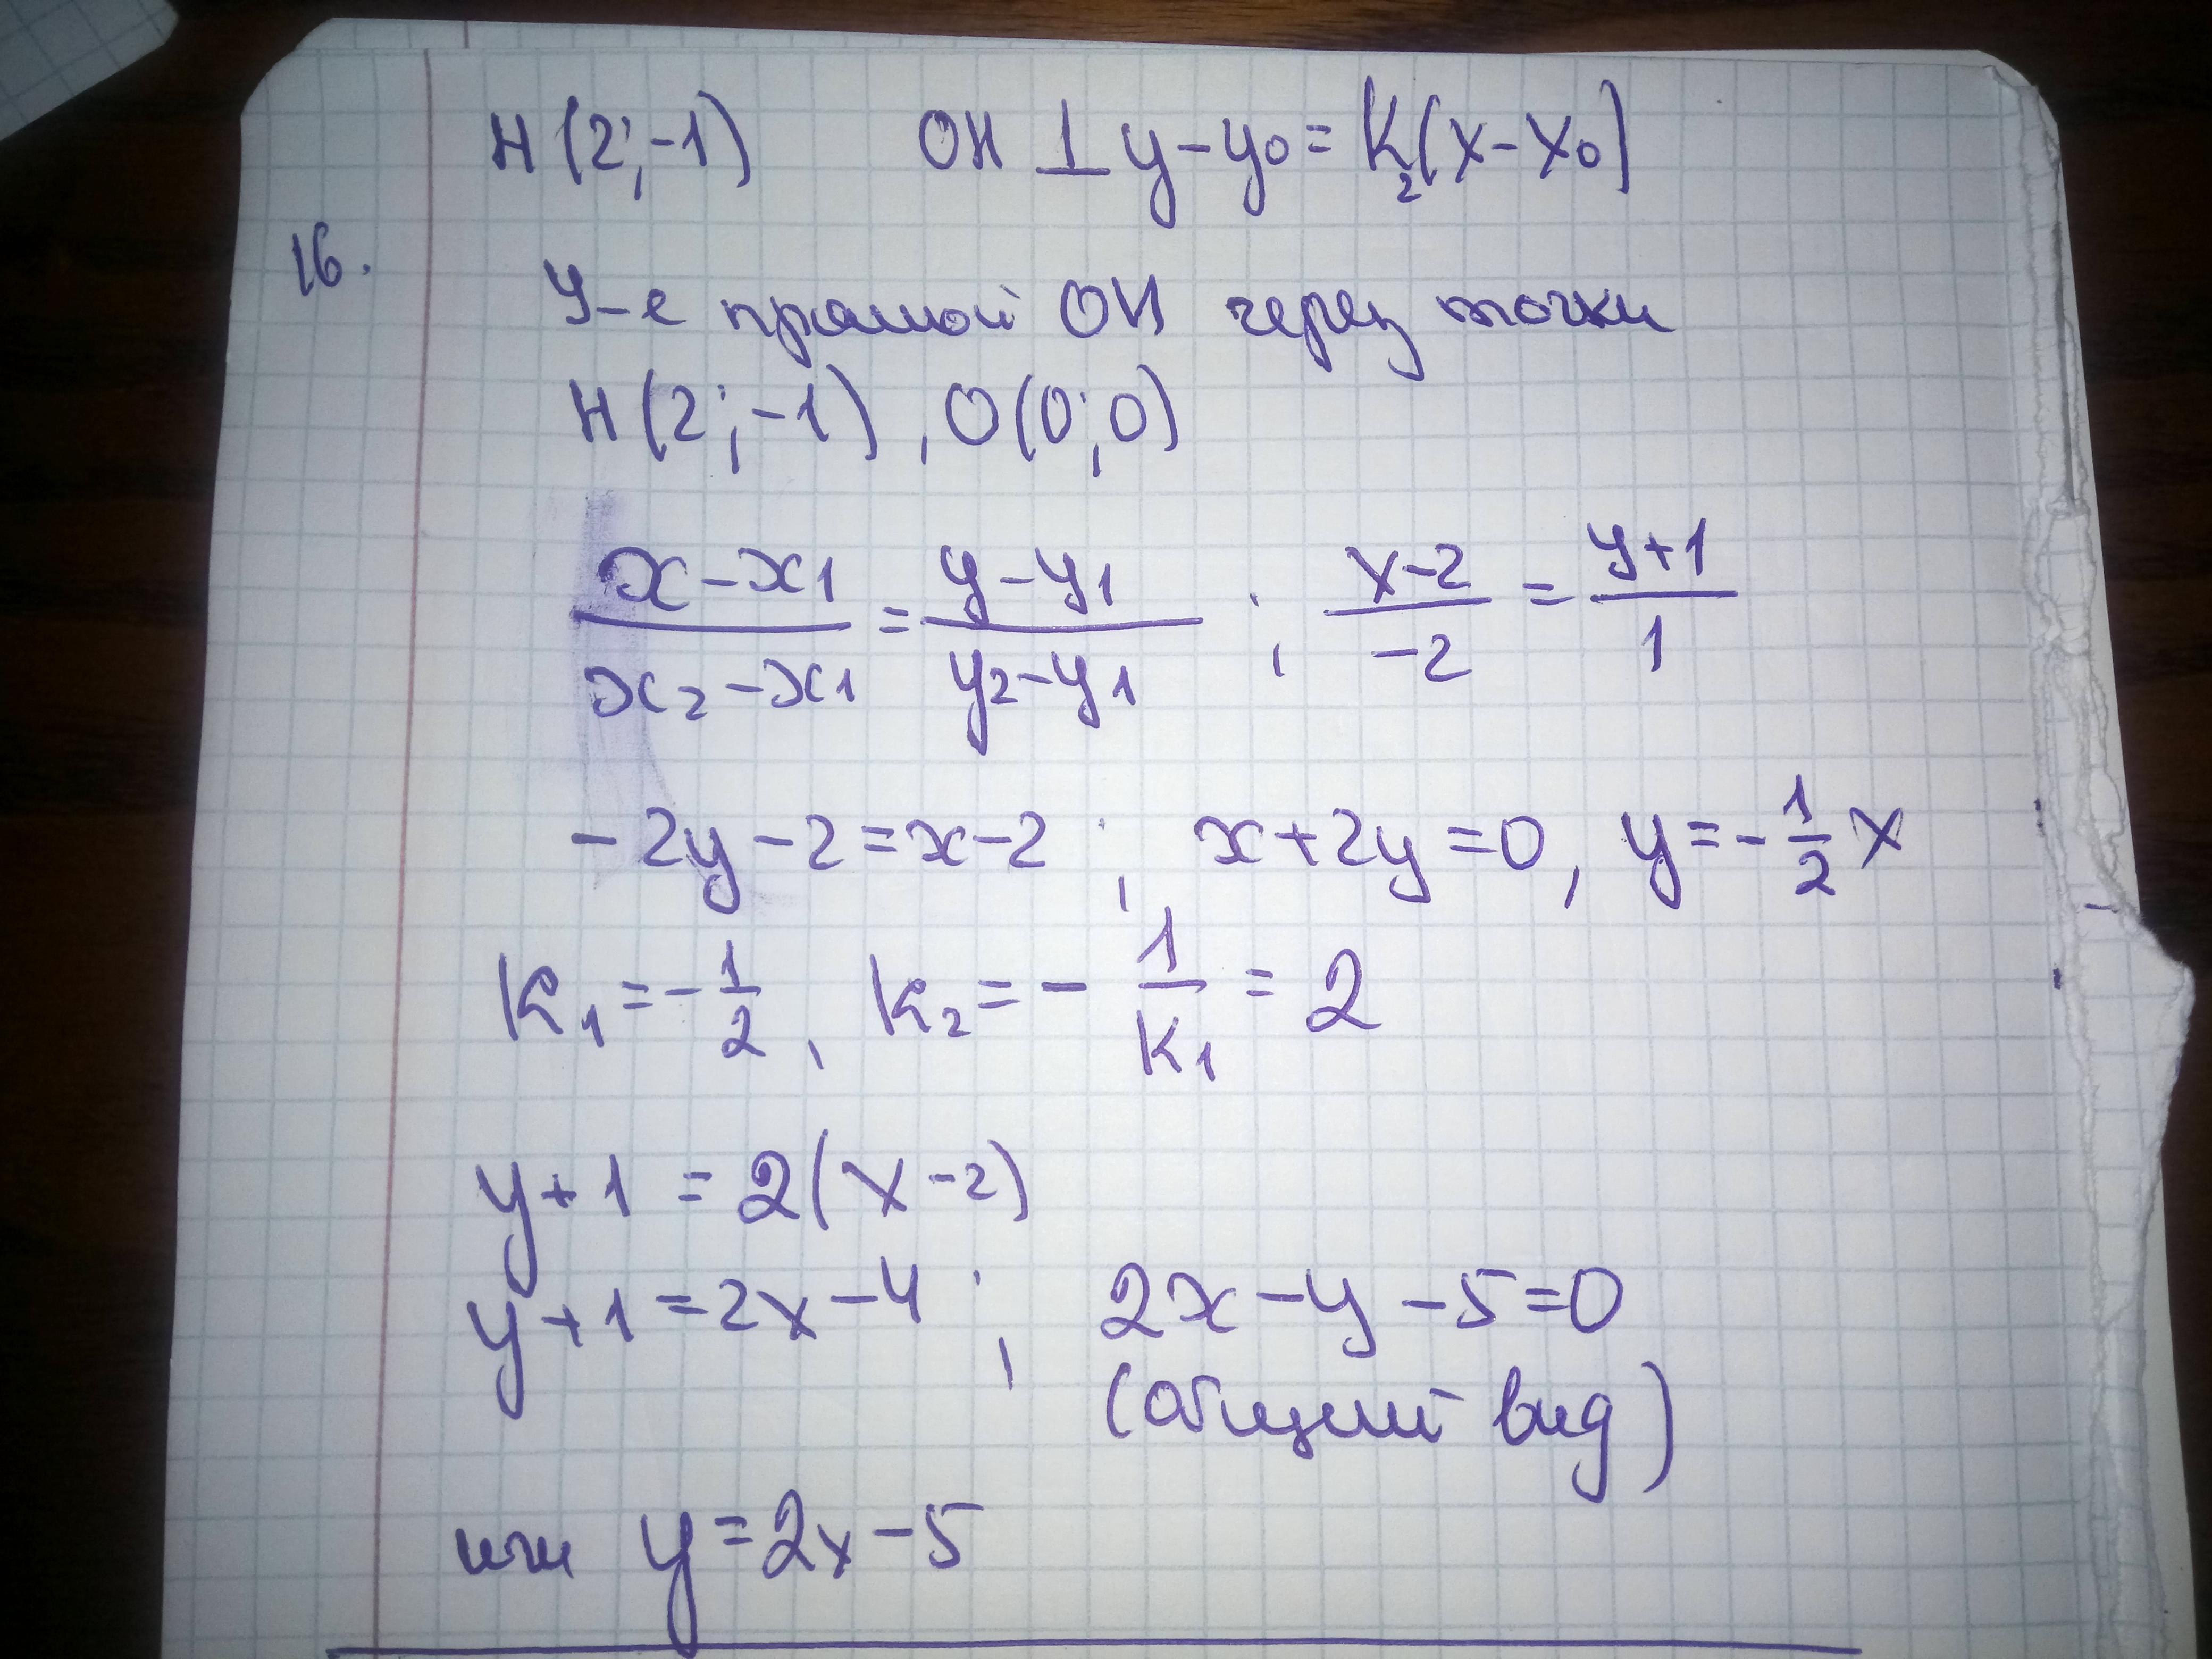 H(2;-1) OH ⊥ y-y₀=K₂(x-x₀)
16.
У-е прямой OH через точки
H(2;-1), O(0;0)
(x-x₁)/(x₂-x₁) = (y-y₁)/(y₂-y₁) ; (x-2)/(-2) = (y+1)/1
-2y-2=x-2 ; x+2y=0, y=-1/2 x
K₁=-1/2, K₂=-1/K₁=2
y+1=2(x-2)
y+1=2x-4 ; 2x-y-5=0
(общий вид)
или y=2x-5